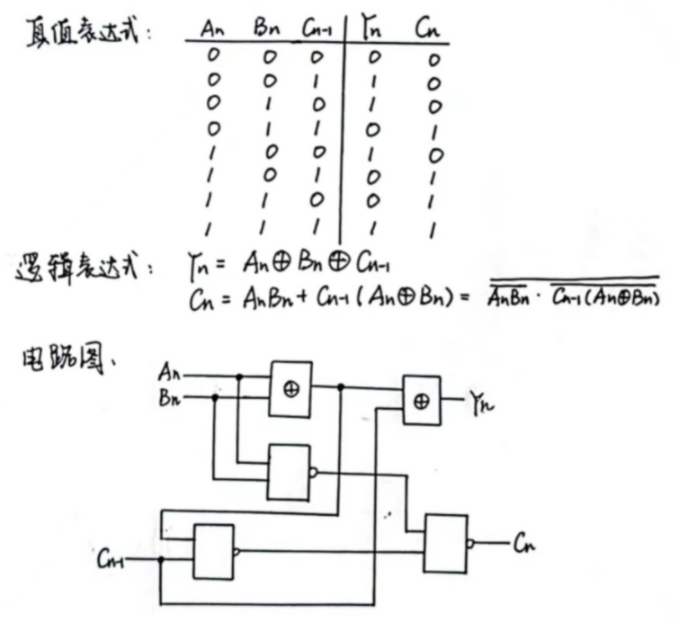 真值表达式：
An Bn Cn-1 Yn Cn
0 0 0 0 0
0 0 1 1 0
0 1 0 1 0
0 1 1 0 1
1 0 0 1 0
1 0 1 0 1
1 1 0 0 1
1 1 1 1 1
逻辑表达式： Yn = An⊕Bn⊕Cn-1
Cn = AnBn + Cn-1(An⊕Bn) = AnBn · Cn-1(An⊕Bn)
电路图、
An
⊕
⊕
Bn
Yn
Cn-1
Cn